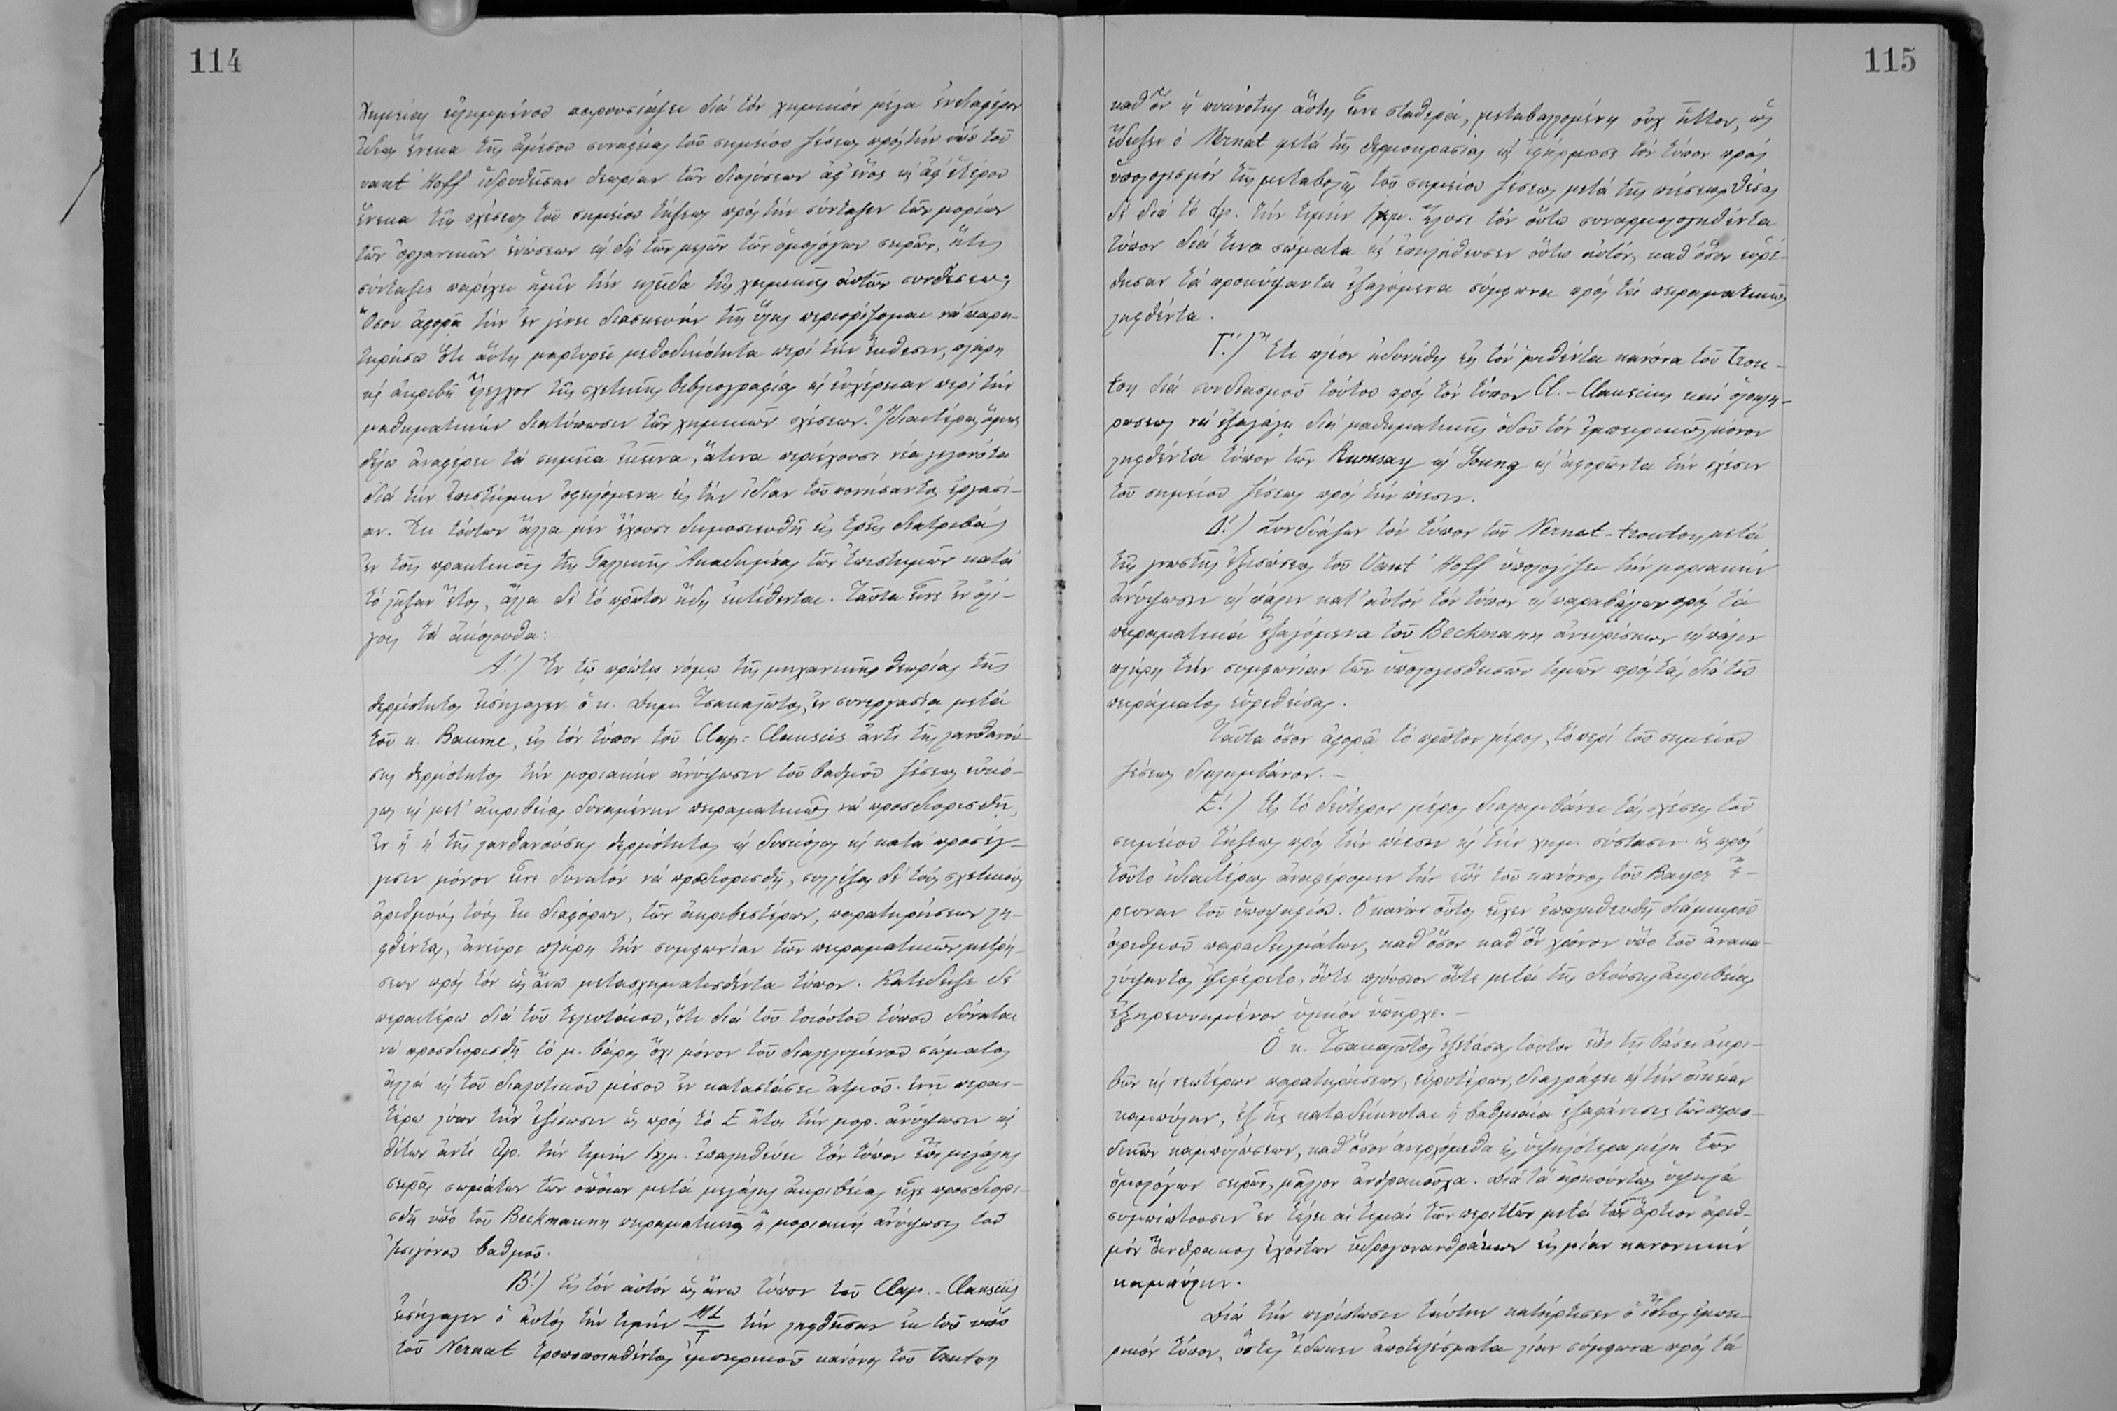 114
Χημείας εἰλημμένου παρουσιάζει διὰ τὸν χημικὸν μέγα ἐνδιαφέρον
ἰδίως ἕνεκα τῆς ἀμέσου συναφείας τοῦ σημείου ζέσεως πρὸς τὴν ὑπὸ τοῦ
vant' Hoff ἱδρυθεῖσαν θεωρίαν τῶν διαλύσεων ἀφ' ἑνὸς κ ἀφ' ἑτέρου
ἕνεκα τῆς σχέσεως τοῦ σημείου τήξεως πρὸς τὴν σύνταξιν τῶν μορίων
τῶν ὀργανικῶν ἑνώσεων κ δὴ τῶν μελῶν τῶν ὁμολόγων σειρῶν, ἥτις
σύνταξις παρέχει ἡμῖν τὴν κλεῖδα τῆς χημικῆς αὐτῶν συνθέσεως
Ὅσον ἀφορᾷ τὴν ἐν γένει διασκευὴν τῆς ὕλης περιορίζομαι νὰ παρα-
τηρήσω ὅτι αὕτη μαρτυρεῖ μεθοδικότητα περὶ τὴν ἔκθεσιν, πλήρη
κ ἀκριβῆ ἔλεγχον τῆς σχετικῆς βιβλιογραφίας κ εὐχέρειαν περὶ τὴν
μαθηματικὴν διατύπωσιν τῶν χημικῶν σχέσεων. Ἰδιαιτέρως ὅμως
θέλω ἀναφέρει τὰ σημεῖα ἐκεῖνα, ἅτινα περιέχουσι νέα γεγονότα
διὰ τὴν ἐπιστήμην ὀφειλόμενα εἰς τὴν ἰδίαν τοῦ ποιήσαντος ἐργασί-
αν. Ἐκ τούτων ἄλλα μὲν ἔχουσι δημοσιευθῆ εἰς τρεῖς διατριβὰς
ἐν τοῖς πρακτικοῖς τῆς Γαλλικῆς Ἀκαδημείας τῶν Ἐπιστημῶν κατὰ
τὸ λῆξαν ἔτος, ἄλλα δὲ τὸ πρῶτον ἤδη ἐκτίθενται. Ταῦτα εἶνε ἐν ὀλί-
γοις τὰ ἀκόλουθα:
Α΄) Ἐν τῷ πρώτῳ νόμῳ τῆς μηχανικῆς θεωρίας τῆς
θερμότητος εἰσήγαγεν ὁ κ. Δημ. Τσακαλῶτος, ἐν συνεργασίᾳ μετὰ
τοῦ κ. Baume, εἰς τὸν τύπον τοῦ Clap-Clausius ἀντὶ τῆς λανθανού-
σης θερμότητος τὴν μοριακὴν ἀνύψωσιν τοῦ βαθμοῦ ζέσεως εὐκό-
λως κ μετ' ἀκριβείας δυναμένην πειραματικῶς νὰ προσδιορισθῇ,
ἐν ᾧ ἡ τῆς λανθανούσης θερμότητος κ δυσκόλως κ κατὰ προσέγ-
γισιν μόνον εἶνε δυνατὸν νὰ προσδιορισθῇ, συλλέξας δὲ τοὺς σχετικοὺς
ἀριθμοὺς τοὺς ἐκ διαφόρων, τῶν ἀκριβεστέρων, παρατηρήσεων λη-
φθέντας, ἀνεῦρε πλήρη τὴν συμφωνίαν τῶν πειραματικῶν μετρή-
σεων πρὸς τὸν ὡς ἄνω μετασχηματισθέντα τύπον. Κατέδειξε δὲ
περαιτέρω διὰ τοῦ τελευταίου, ὅτι διὰ τοῦ τοιούτου τύπου δύναται
νὰ προσδιορισθῇ τὸ μ. βάρος ὄχι μόνον τοῦ διαλελυμένου σώματος
ἀλλὰ κ τοῦ διαλυτικοῦ μέσου ἐν καταστάσει ἀτμοῦ. ἔτι περαι-
τέρω λύων τὴν ἐξίσωσιν ὡς πρὸς τὸ Ε ἤτοι τὴν μορ. ἀνύψωσιν κ
θέτων ἀντὶ dp. τὴν τιμὴν 1χμ. ἐπαληθεύει τὸν τύπον ἐπὶ μεγάλης
σειρᾶς σωμάτων τῶν ὁποίων μετὰ μεγάλης ἀκριβείας εἶχε προσδιορι-
σθῆ ὑπὸ τοῦ Beckmann πειραματικῶς ἡ μοριακὴ ἀνύψωσις τοῦ
βαθμοῦ.
Β΄) Εἰς τὸν αὐτὸν ὡς ἄνω τύπον τοῦ Clap.-Clausius
εἰσήγαγεν ὁ αὐτὸς τὴν τιμὴν ML/T τὴν ληφθεῖσαν ἐκ τοῦ ὑπὸ
τοῦ Nernst τροποποιηθέντος ἐμπειρικοῦ κανόνος τοῦ Trouton
115
καθ' ὃν ἡ ποσότης αὕτη εἶνε σταθερά, μεταβαλλομένη οὐχ ἧττον, ὡς
ἔδειξεν ὁ Nernst μετὰ τῆς θερμοκρασίας κ ἐφήρμοσε τὸν τύπον πρὸς
ὑπολογισμὸν τῆς μεταβολῆς τοῦ σημείου ζέσεως μετὰ τῆς πιέσεως θέσας
δὲ διὰ τὸ dp. τὴν τιμὴν 1χμ. ἔλυσε τὸν οὕτω συναρμολογηθέντα
τύπον διά τινα σώματα κ ἐπηλήθευσεν οὕτω αὐτόν, καθ' ὅσον εὑρέ-
θησαν τὰ προκύψαντα ἐξαγόμενα σύμφωνα πρὸς τὰ πειραματικῶς
ληφθέντα.
Γ΄) Ἔτι πλέον ἠδυνήθη ἐκ τὸν ῥηθέντα κανόνα τοῦ Trou-
ton διὰ συνδυασμοῦ τούτου πρὸς τὸν τύπον Cl.-Clausius καὶ ὁλοκλη-
ρώσεως νὰ ἐξαγάγῃ διὰ μαθηματικῆς ὁδοῦ τὸν ἐμπειρικῶς μόνον
ληφθέντα τύπον τῶν Ramsay κ Young κ ἀφορῶντα τὴν σχέσιν
τοῦ σημείου ζέσεως πρὸς τὴν πίεσιν.
Δ΄) Συνδυάζων τὸν τύπον τοῦ Nernst-Trouton μετὰ
τῆς γνωστῆς ἐξισώσεως τοῦ Vant' Hoff ὑπολογίζει τὴν μοριακὴν
ἀνύψωσιν κ πάλιν κατ' αὐτὸν τὸν τύπον κ παραβάλλων πρὸς τὰ
πειραματικὰ ἐξαγόμενα τοῦ Beckmann ἀνευρίσκων κ πάλιν
πλήρη τὴν συμφωνίαν τῶν ὑπολογισθεισῶν τιμῶν πρὸς τὰς διὰ τοῦ
πειράματος εὑρεθείσας.
Ταῦτα ὅσον ἀφορᾷ τὸ πρῶτον μέρος, τὸ περὶ τοῦ σημείου
ζέσεως διαλαμβάνον.-
Ε΄) Εἰς τὸ δεύτερον μέρος διαλαμβάνει τὰς σχέσεις τοῦ
σημείου τήξεως πρὸς τὴν πίεσιν κ τὴν χημ. σύστασιν ὡς πρὸς
τοῦτο ἰδιαιτέρως ἀναφέρομεν τὴν ἐπὶ τοῦ κανόνος τοῦ Bayer ἔ-
ρευναν τοῦ ὑποψηφίου. Ὁ κανὼν οὗτος εἶχεν ἐπαληθευθῆ διὰ μικροῦ
ἀριθμοῦ παραδειγμάτων, καθ' ὅσον καθ' ὃν χρόνον ὑπὸ τοῦ ἀνακα-
λύψαντος ἐξεφέρετο, οὔτε πλούσιον οὔτε μετὰ τῆς δεούσης ἀκριβείας
ἐξηρευνημένον ὑλικὸν ὑπῆρχε.-
Ὁ κ. Τσακαλῶτος ἐξετάσας τοῦτον ἐπὶ τῇ βάσει ἀκρι-
βῶν κ νεωτέρων παρατηρήσεων, εὐρυτέρων, διαγράφει κ τὴν οἰκείαν
καμπύλην, ἐξ ἧς καταδείκνυται ἡ βαθμιαία ἐξαφάνισις τῶν περιο-
δικῶν καμπυλώσεων, καθ' ὅσον ἀνερχόμεθα εἰς ὑψηλότερα μέλη τῶν
ὁμολόγων σειρῶν, μᾶλλον ἀνθρακοῦχα. Διὰ τὰ ἀρκούντως ὑψηλὰ
συμπίπτουσιν ἐν τέλει αἱ τιμαὶ τῶν περιττῶν μετὰ τῶν ἄρτιον ἀριθ-
μὸν ἄνθρακος ἐχόντων ὑδρογονανθράκων εἰς μίαν κανονικὴν
καμπύλην.
Διὰ τὴν περίπτωσιν ταύτην κατήρτισεν ὁ ἴδιος ἐμπει-
ρικὸν τύπον, ὅστις ἔδωκεν ἀποτελέσματα λίαν σύμφωνα πρὸς τὰ